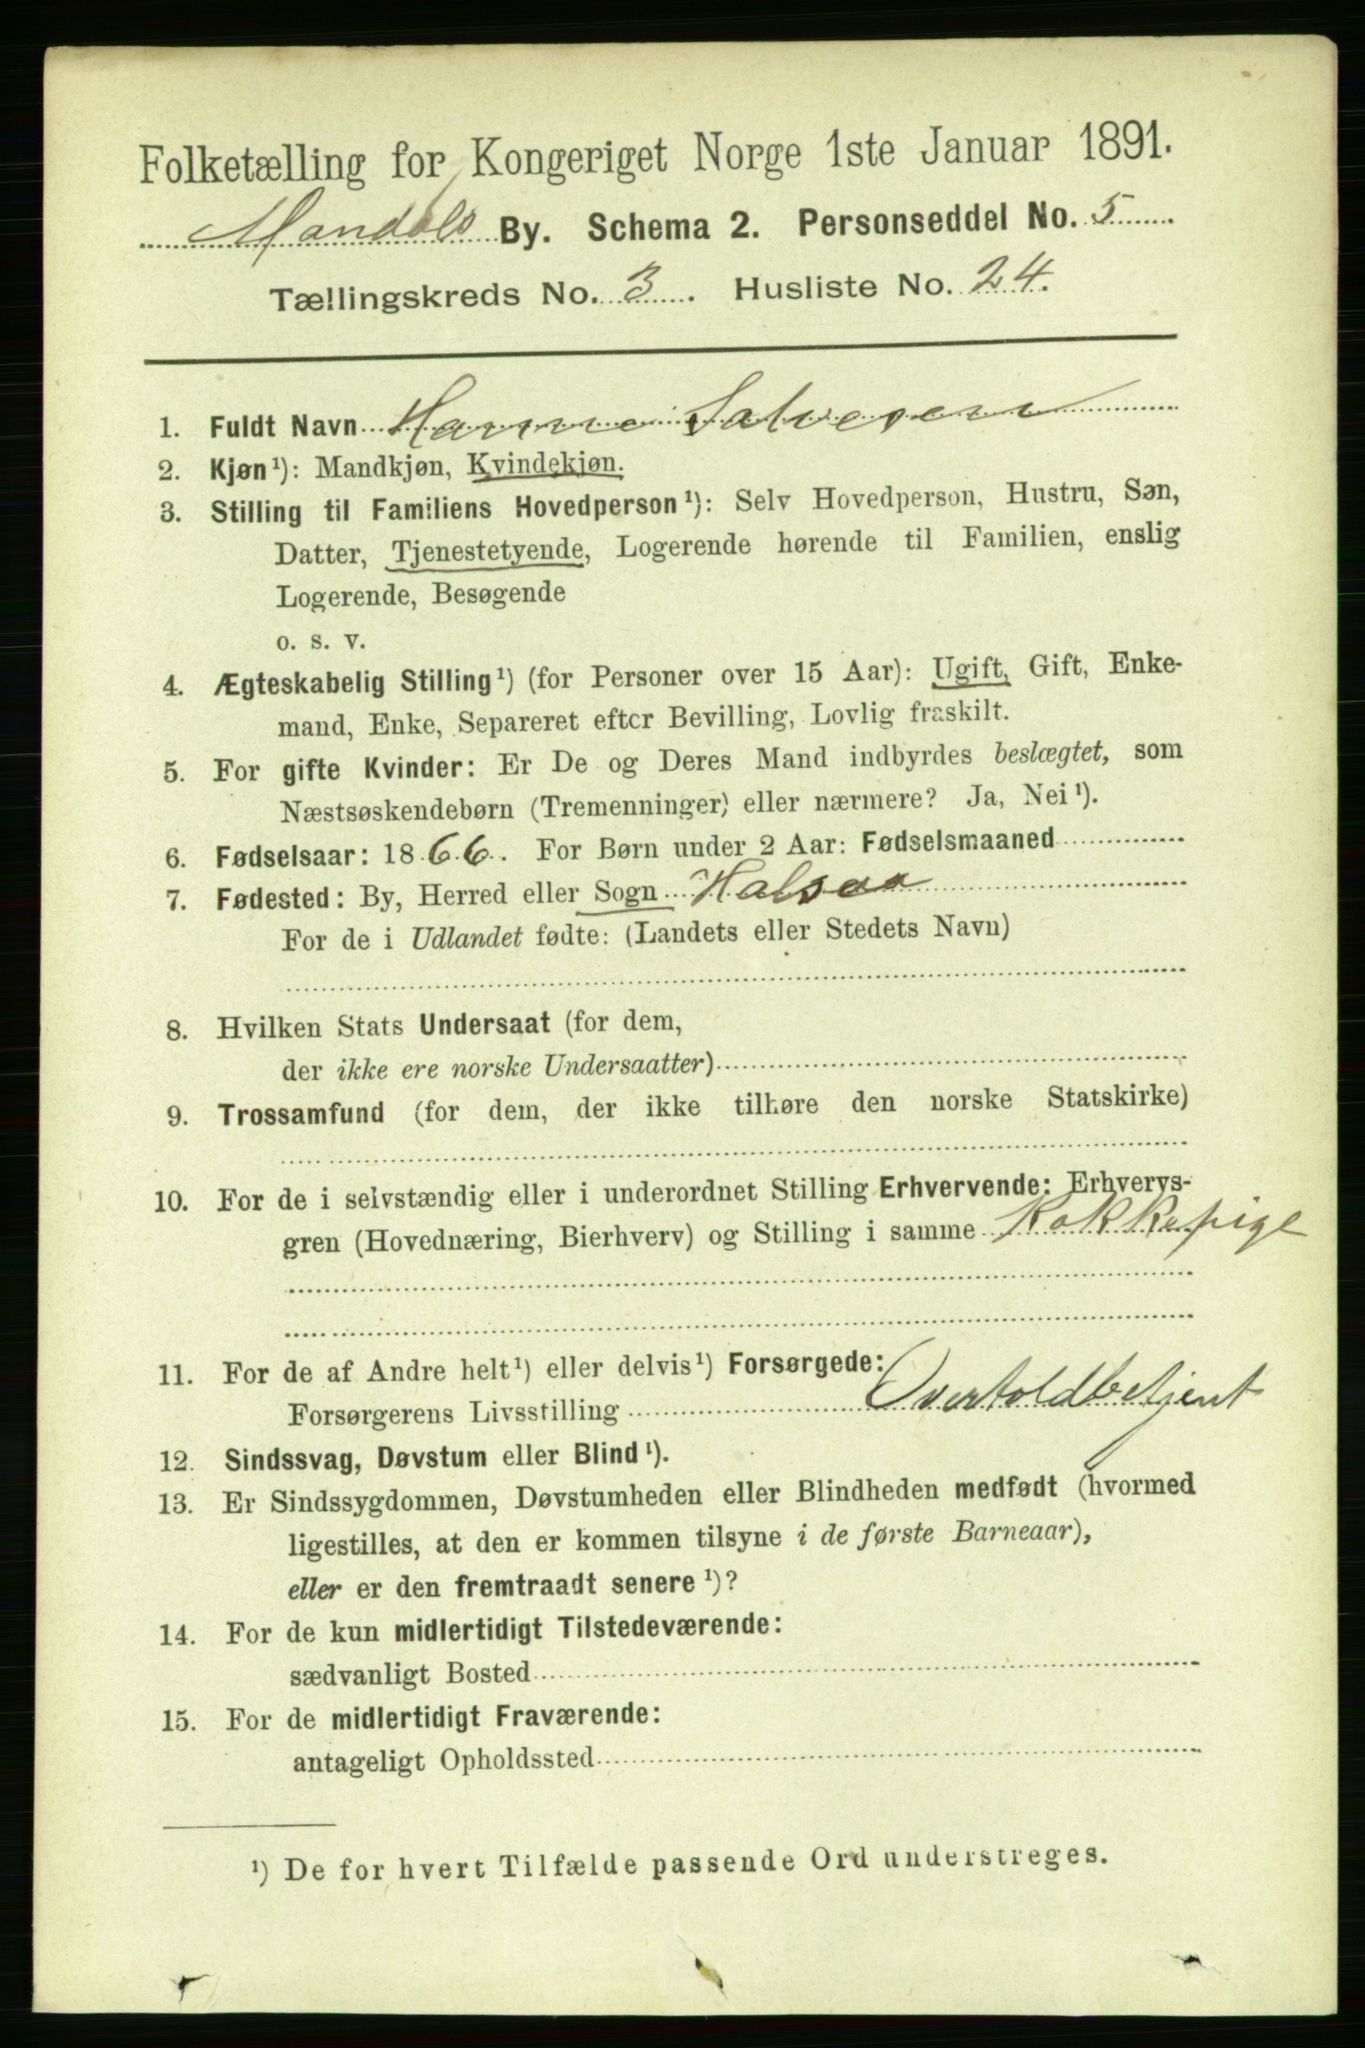 Folketælling for Kongeriget Norge 1ste Januar 1891.
Mandals By. Schema 2. Personseddel No. 5
Tællingskreds No. 3. Husliste No. 24.
1. Fuldt Navn Hanne Salvesen
2. Kjøn¹): Mandkjøn, Kvindekjøn.
3. Stilling til Familiens Hovedperson¹): Selv Hovedperson, Hustru, Søn,
Datter, Tjenestetyende, Logerende hørende til Familien, enslig
Logerende, Besøgende
o. s. v.
4. Ægteskabelig Stilling¹) (for Personer over 15 Aar): Ugift, Gift, Enke-
mand, Enke, Separeret efter Bevilling, Lovlig fraskilt.
5. For gifte Kvinder: Er De og Deres Mand indbyrdes beslægtet, som
Næstsøskendebørn (Tremenninger) eller nærmere? Ja, Nei¹).
6. Fødselsaar: 1866. For Børn under 2 Aar: Fødselsmaaned
7. Fødested: By, Herred eller Sogn Halsaa
For de i Udlandet fødte: (Landets eller Stedets Navn)
8. Hvilken Stats Undersaat (for dem,
der ikke ere norske Undersaatter)
9. Trossamfund (for dem, der ikke tilhøre den norske Statskirke)
10. For de i selvstændig eller i underordnet Stilling Erhvervende: Erhvervs-
gren (Hovednæring, Bierhverv) og Stilling i samme Kokkepige
11. For de af Andre helt¹) eller delvis¹) Forsørgede:
Forsørgerens Livsstilling Overtoldbetjent
12. Sindssvag, Døvstum eller Blind¹).
13. Er Sindssygdommen, Døvstumheden eller Blindheden medfødt (hvormed
ligestilles, at den er kommen tilsyne i de første Barneaar),
eller er den fremtraadt senere¹)?
14. For de kun midlertidigt Tilstedeværende:
sædvanligt Bosted
15. For de midlertidigt Fraværende:
antageligt Opholdssted
¹) De for hvert Tilfælde passende Ord understreges.